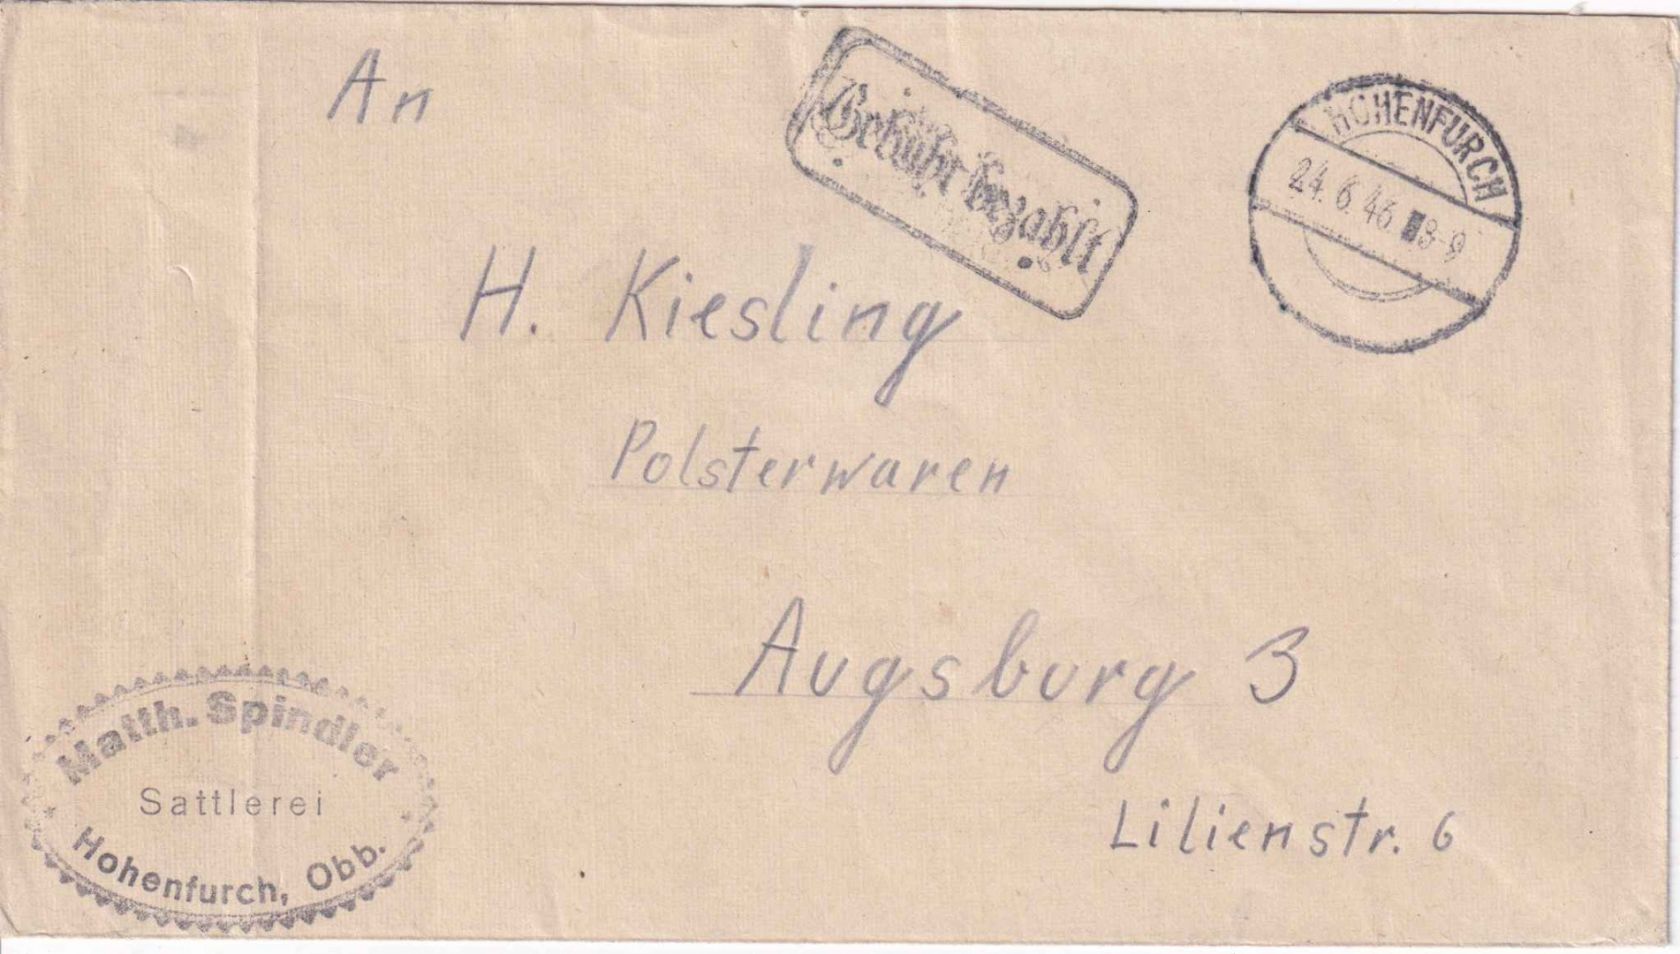 An
Gebühr bezahlt
HOHENFURCH
24.6.46 8-9
H. Kiesling
Polsterwaren
Augsburg 3
Lilienstr. 6
Matth. Spindler
Sattlerei
Hohenfurch, Obb.